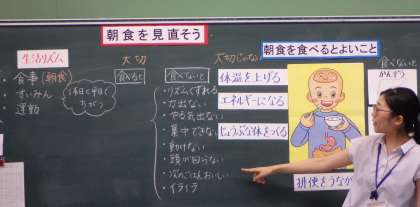 朝食を見直そう
生活リズム
・食事(朝食)
・すいみん
・運動
大切
食べると
大切じゃない
食べないと
・リズムくずれる
・力出ない
・やる気出ない
・集中できない
・動けない
・頭が回らない
・次のごはんおいしい
・イライラ
朝食を食べるとよいこと
体温を上げる
エネルギーになる
じょうぶな体をつくる
排便をうなが
食べないと
かんそう